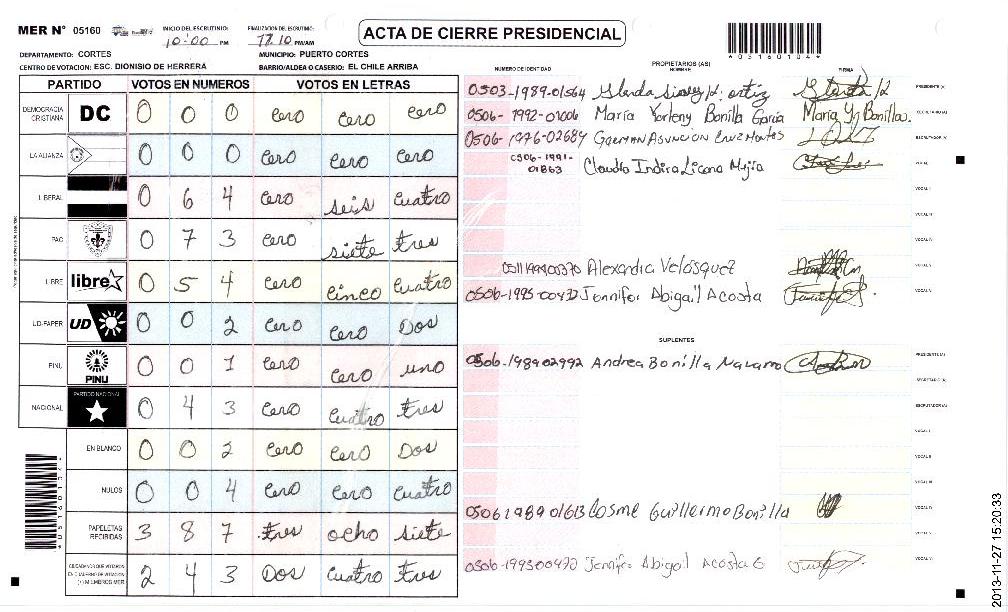 MER N° 05160
INICIO DEL ESCRUTINIO: 10:00 PM
FINALIZACION DEL ESCRUTINIO: PM/AM
ACTA DE CIERRE PRESIDENCIAL
*05160104*
DEPARTAMENTO: CORTES
MUNICIPIO: PUERTO CORTES
CENTRO DE VOTACION: ESC. DIONISIO DE HERRERA
BARRIO/ALDEA O CASERIO: EL CHILE ARRIBA
PARTIDO VOTOS EN NUMEROS VOTOS EN LETRAS
DEMOCRACIA CRISTIANA DC 0 0 0 cero cero cero
LA ALIANZA 0 0 0 cero cero cero
LIBERAL 0 6 4 cero seis cuatro
PAC 0 7 3 cero siete tres
LIBRE libre 0 5 4 cero cinco cuatro
UD-FAPER UD 0 0 2 cero cero Dos
PINU PINU 0 0 1 cero cero uno
NACIONAL PARTIDO NACIONAL 0 4 3 cero cuatro tres
EN BLANCO 0 0 2 cero cero Dos
NULOS 0 0 4 cero cero cuatro
PAPELETAS RECIBIDAS 3 8 7 tres ocho siete
CIUDADANOS QUE VOTARON EN CUADERNO DE VOTACION (+) MIEMBROS MER 2 4 3 Dos cuatro tres
PROPIETARIOS (AS)
NUMERO DE IDENTIDAD NOMBRE FIRMA
0503-1989-01564 PRESIDENTE (A)
0506-1992-01006 María Yorleny Bonilla García María Y. Bonilla. SECRETARIO (A)
0506-1976-02684 GERMAN ASUNCION CRUZ MONTES ESCRUTADOR (A)
0506-1991-01863 Claudia Indira Licona Mejía VOCAL
VOCAL I
VOCAL II
VOCAL III
051119900370 Alexandra Velásquez
0506-1995-00470 Jennifer Abigail Acosta
SUPLENTES
0506-198902992 Andrea Bonilla Navarro PRESIDENTE (A)
SECRETARIO (A)
ESCRUTADOR (A)
VOCAL I
VOCAL II
VOCAL III
0506198901613 Cosme Guillermo Bonilla VOCAL IV
VOCAL V
0506-199500470 Jennifer Abigail Acosta G VOCAL VI
2013-11-27 15:20:33